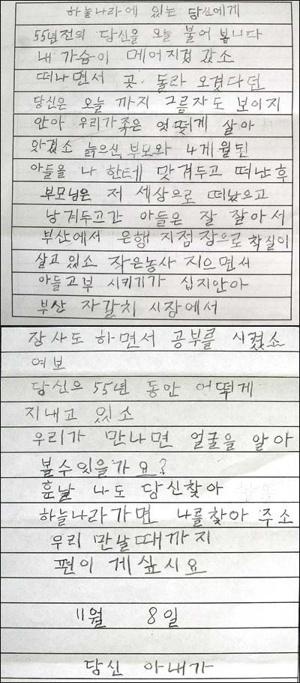 하늘나라에 있는 당신에게
55년전의 당신을 오늘 불어 봅니다
내 가슴이 메어지컸 같소
떠나면서 곳 돌라 오겠다던
당신은 오늘 까지 그름자도 보이지
안아 우리가족은 엇떻게 살아
와겠소 늙으신 부모와 4개월된
아들을 나 한테 맛겨두고 떠난후
부모님은 저 세상으로 떠났으고
남겨두고간 아들은 잘 잘아서
부산에서 은행 지점장으로 착실이
살고 있소 작은농사 지으면서
아들고부 시키기가 십지안아
부산 자갈치 시장에서
장사도 하면서 공부를 시켰쇼
여보
당신으 55년 동안 어떻게
지내고 있소
우리가 만나면 얼굴을 알아
볼수있을가요?
훗날 나도 당신찾아
하늘나라가면 나를찾아 주소
우리 만날때까지
편이 게싶시요
11월 8일
당신 아내가